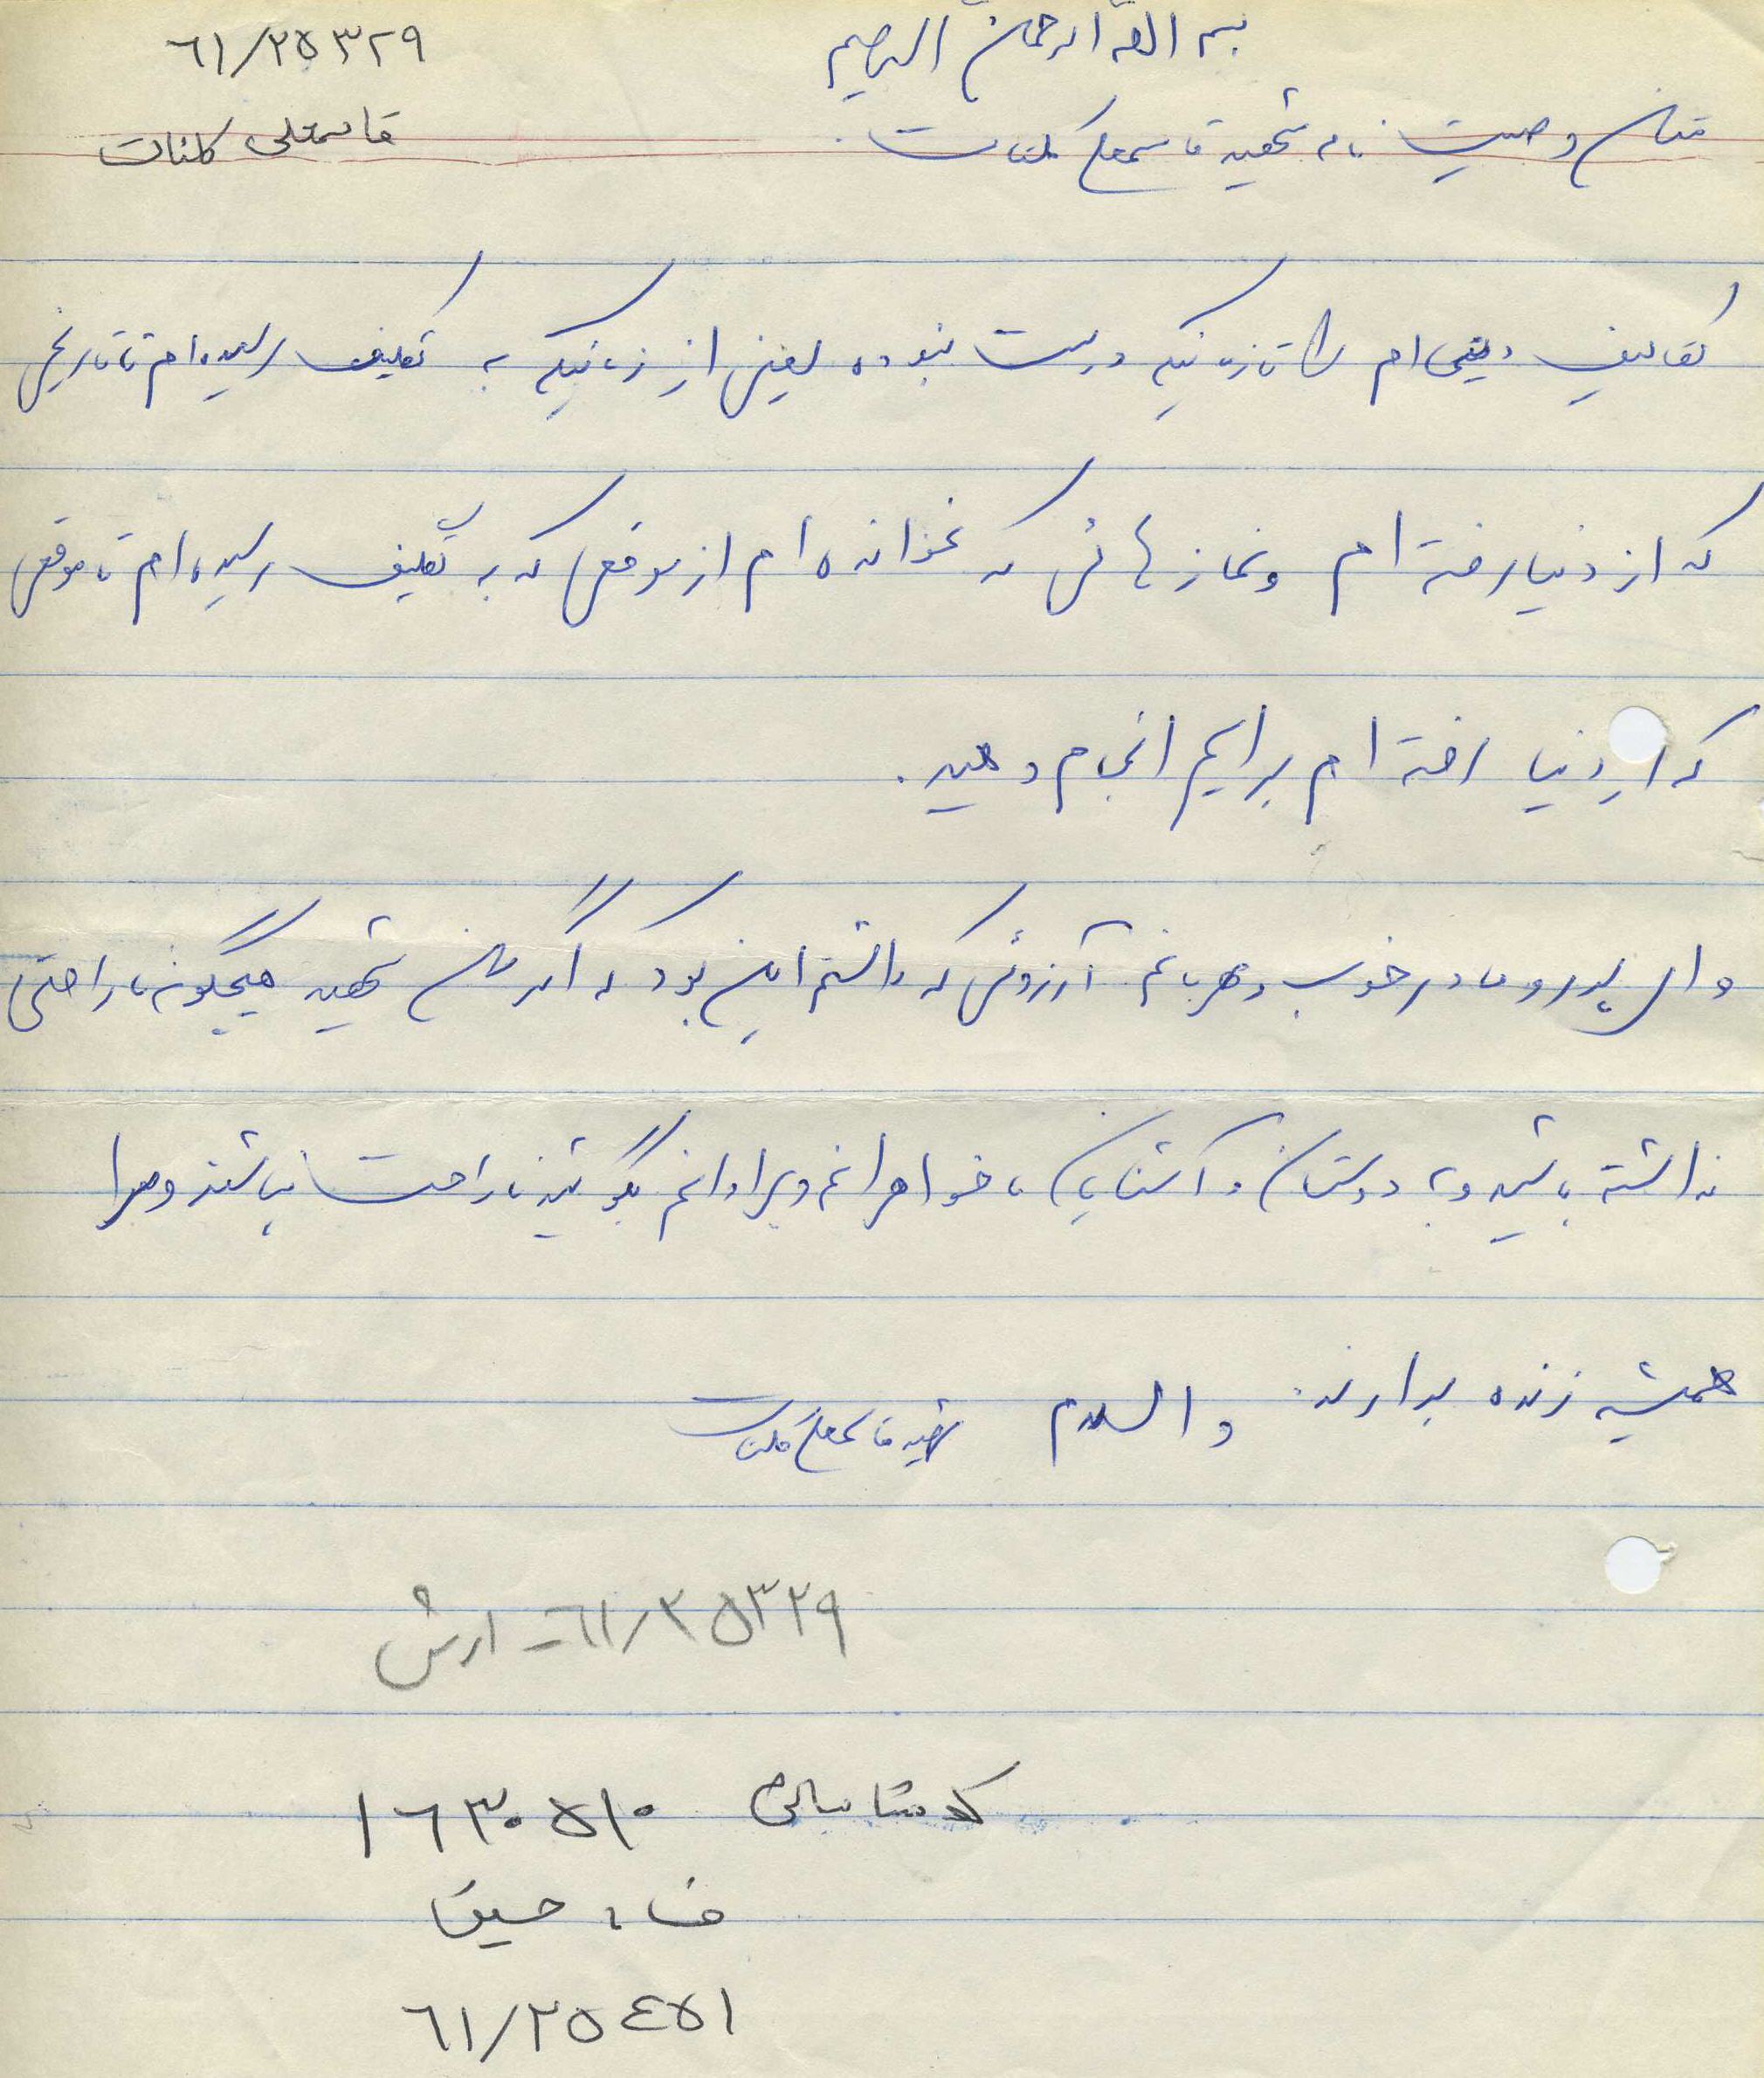 بسم الله الرحمان الرحیم
۶۱/۲۵۳۲۹
متن وصیت نامه شهید قاسمعلی کلنات
قاسمعلی کلنات
تکالیف دینی ام را تا زمانیکه درست نبوده یعنی از زمانیکه به تکلیف رسیده ام تا تاریخی
که از دنیا رفته ام و نماز هائی که نخوانده ام از موقعی که به تکلیف رسیده ام تا موقعی
که از دنیا رفته ام برایم انجام دهید.
و ای پدر و مادر خوب و مهربانم آرزوئی که داشتم این بود که اگر من شهید هیچگونه ناراحتی
نداشته باشید و به دوستان و آشنایان، خواهرانم و برادرانم بگوئید ناراحت نباشند و مرا
همیشه زنده بدارند. والسلام شهید قاسمعلی کلنات
۶۱/۲۵۳۲۹ - ارش
کد شناسائی ۱۶۳۰۵۱۰
۶۱/۲۵۴۵۱